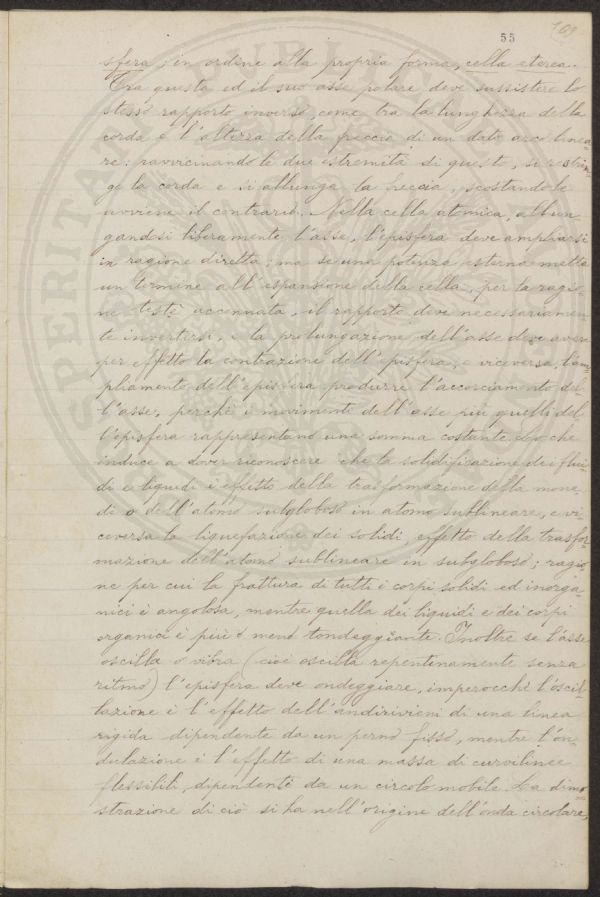 55 109
sfera; in ordine alla propria forma, cella eterea.
Tra questa ed il suo asse polare deve sussistere lo
stesso rapporto inverso, come tra la lunghezza della
corda e l'altezza della freccia di un dato arco linea-
re; ravvicinando le due estremità di questo, si restrin-
ge la corda e si allunga la freccia, scostandole
avviene il contrario. Nella cella atomica, allun-
gandosi liberamente l'asse, l'episfera deve ampliarsi
in ragione diretta; ma se una potenza esterna metta
un termine all'espansione della cella, per la ragio-
ne testè accennata, il rapporto deve necessariamen-
te invertirsi, e la prolungazione dell'asse deve avere
per effetto la contrazione dell'episfera, e viceversa, l'am-
pliamento dell'episfera produrre l'accorciamento del-
l'asse, perchè i movimenti dell'asse più quelli del-
l'episfera rappresentano una somma costante, lo che
induce a dover riconoscere che la solidificazione dei flui-
di e liquidi è effetto della trasformazione della mone-
di o dell'atomo subgloboso in atomo sublineare, e vi-
ceversa la liquefazione dei solidi, effetto della trasfor-
mazione dell'atomo sublineare in subgloboso; ragio-
ne per cui la frattura di tutti i corpi solidi ed inorga-
nici è angolosa, mentre quella dei liquidi e dei corpi
organici è più o meno tondeggiante. Inoltre se l'asse
oscilla o vibra (cioè oscilla repentinamente senza
ritmo) l'episfera deve ondeggiare, imperocchè l'oscil-
lazione è l'effetto dell'andirivieni di una linea
rigida dipendente da un perno fisso, mentre l'on-
dulazione è l'effetto di una massa di curvilinee
flessibili, dipendenti da un circolo mobile. La dimo-
strazione di ciò si ha nell'origine dell'onda circolare,